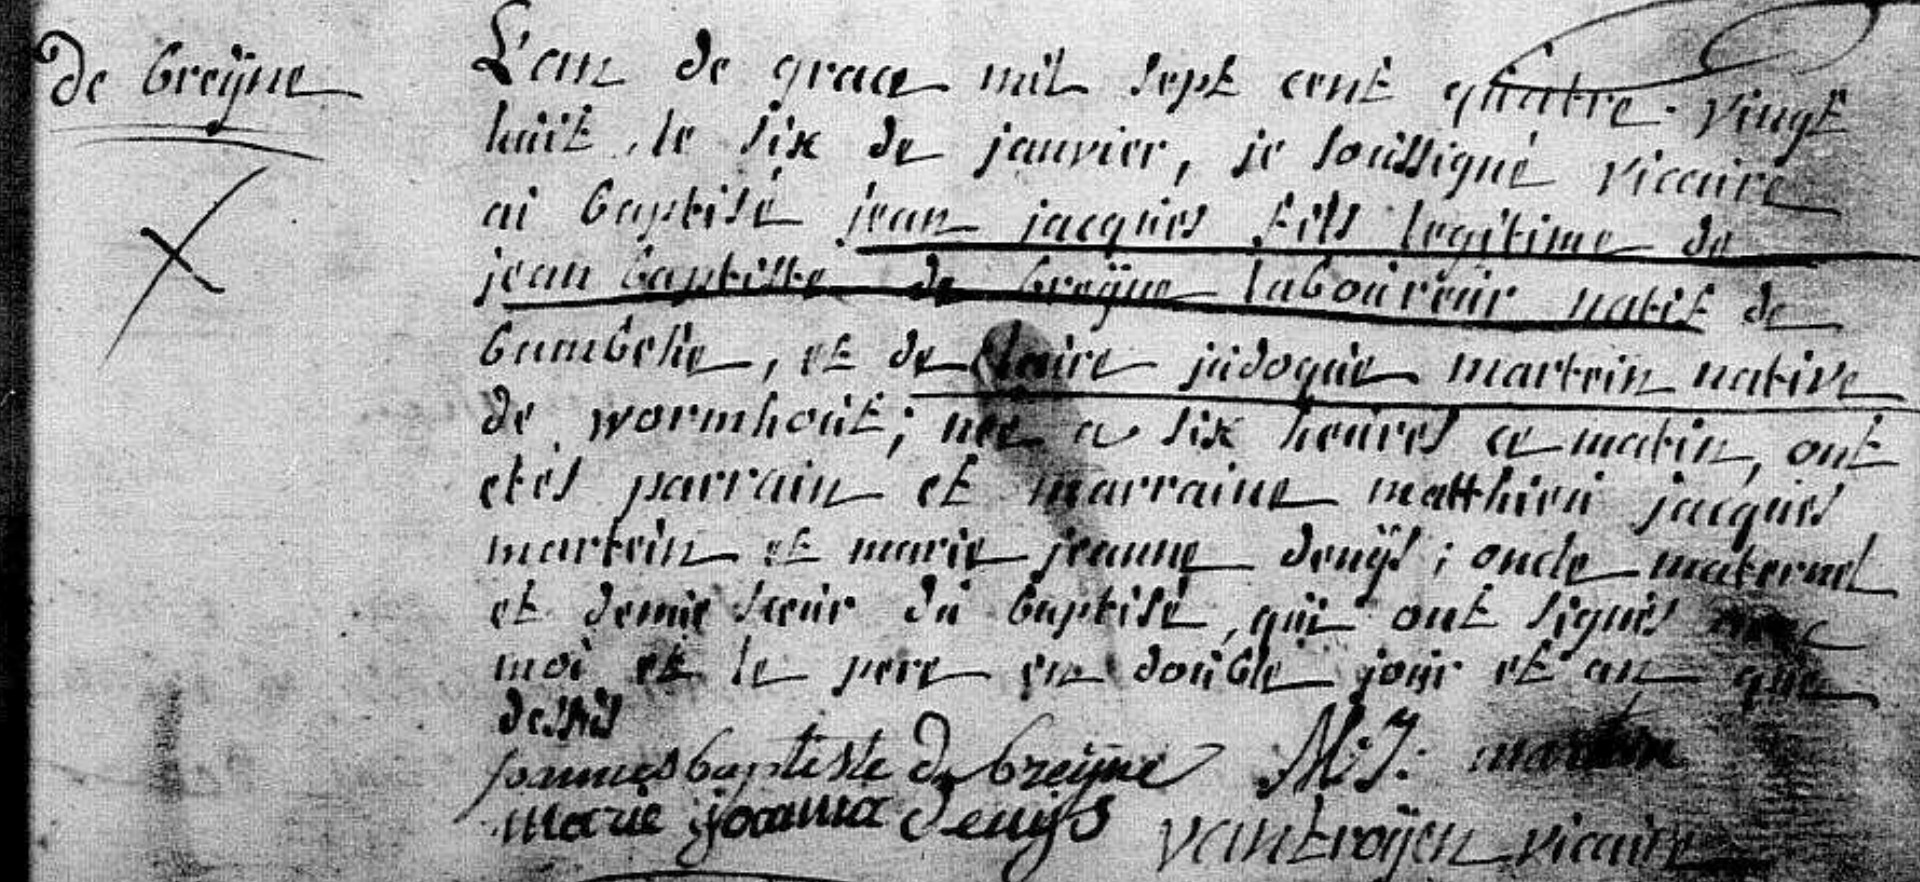 de breÿne
L'an de grace mil sept cent quatre-vingt
huit, le six de janvier, je soussigné vicaire
ai baptisé jean jacques fils legitime de
jean baptiste de breÿne laboureur natif de
bambeke, et de Claire judoque martein native
de wormhout; nee a six heures ce matin, ont
etés parrain et marraine matthieu jacques
martein et marie jeanne denÿs; oncle maternel
et demie sœur du baptisé, qui ont signés avec
moi et le pere en double jour et an que
dessus
joannes baptiste de breijne M: J: martein
marie joanna denijs vantroÿen vicaire